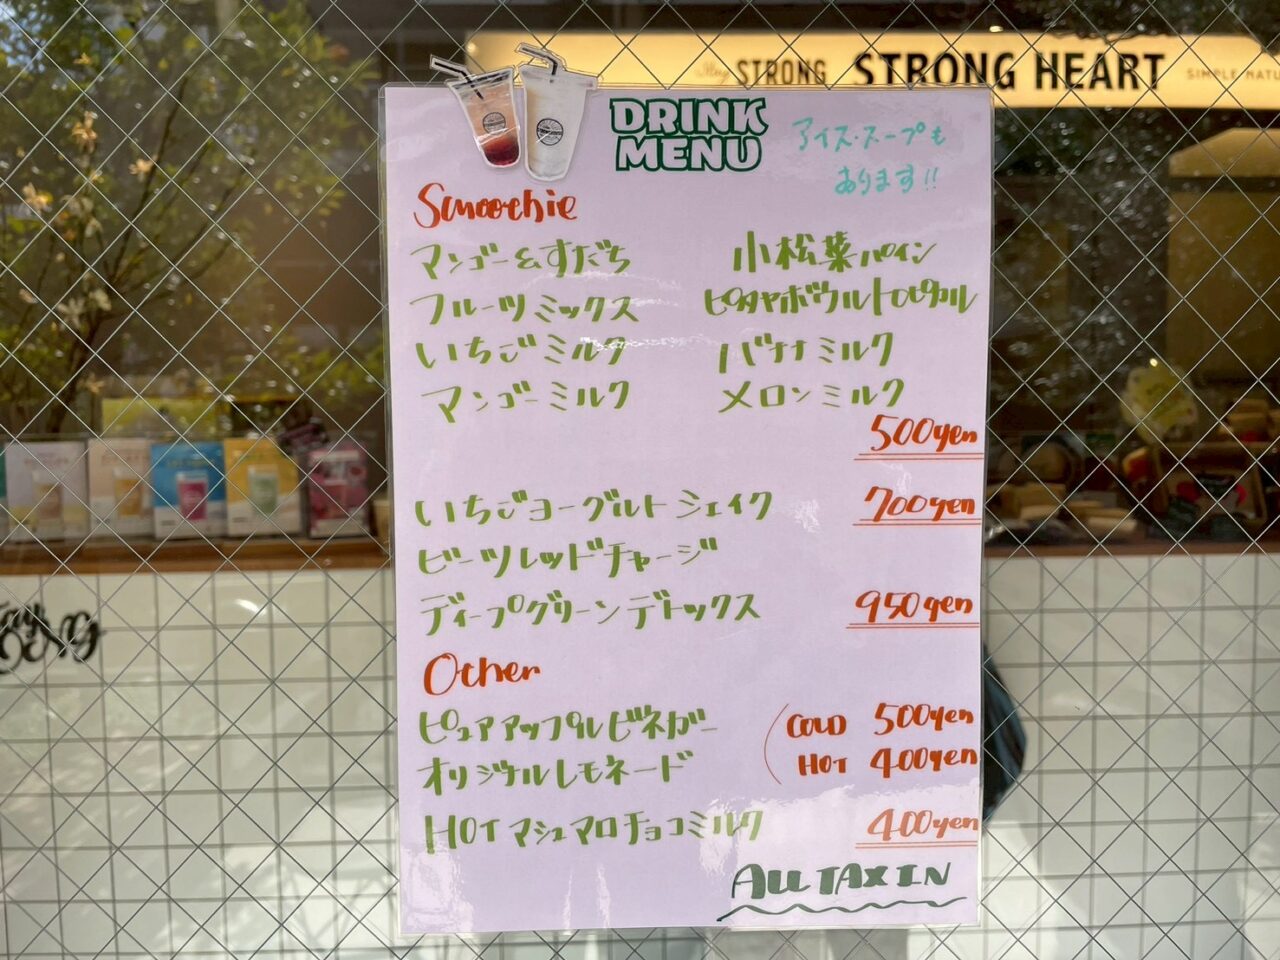 STRONG STRONG HEART
DRINK
MENU
アイス・スープも
あります!!
Smoothie
マンゴー&すだち 小松菜パイン
フルーツミックス ピタヤボウルトロピカル
いちごミルク バナナミルク
マンゴーミルク メロンミルク
500yen
いちごヨーグルトシェイク 700yen
ビーツレッドチャージ
ディープグリーンデトックス 950yen
Other
ピュアアップルビネガー COLD 500yen
オリジナルレモネード HOT 400yen
HOTマシュマロチョコミルク 400yen
ALL TAX IN